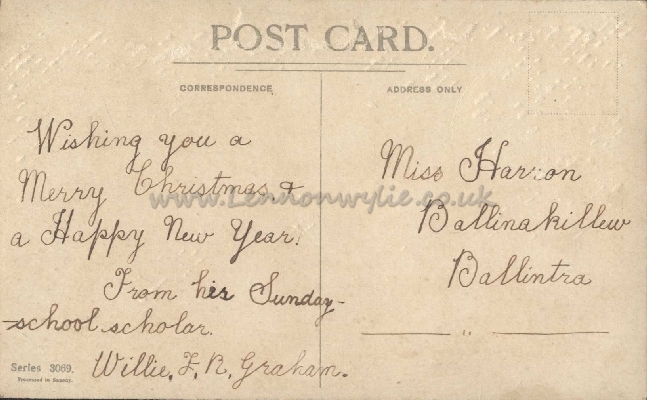 POST CARD.
CORRESPONDENCE
ADDRESS ONLY
Wishing you a
Merry Christmas, &
a Happy New Year!
From her Sunday-
school scholar.
Willie, F, R, Graham.
Miss Harron
Ballinakillew
Ballintra
www.Lennonwylie.co.uk
Series 3069.
Processed in Saxony.